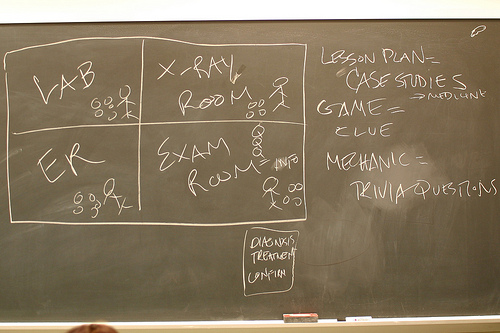 LAB
X-RAY
ROOM
ER
EXAM
ROOM = INFO
DIAGNOSIS
TREATMENT
CONFIRM
LESSON PLAN =
CASE STUDIES
→ MEDICINE
GAME =
CLUE
MECHANIC =
TRIVIA QUESTIONS